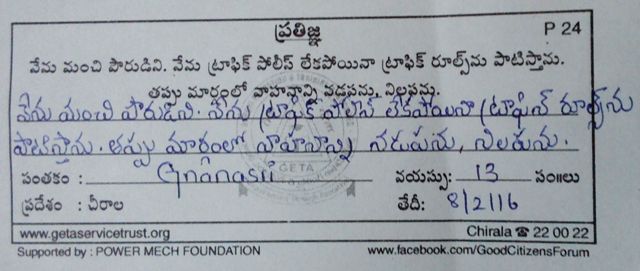 ప్రతిజ్ఞ P 24
నేను మంచి పౌరుడిని. నేను ట్రాఫిక్ పోలీస్ లేకపోయినా ట్రాఫిక్ రూల్స్‌ను పాటిస్తాను.
తప్పు మార్గంలో వాహనాన్ని నడపను, నిలపను.
నేను మంచి పౌరుడిని. నేను ట్రాఫిక్ పోలీస్ లేకపోయినా ట్రాఫిక్ రూల్స్‌ను
పాటిస్తాను. తప్పు మార్గంలో వాహనాన్ని నడుపను, నిలుపను.
GETA
సంతకం : Gnanasri వయస్సు: 13 సం॥లు
ప్రదేశం : చీరాల తేదీ: 8/2/16
www.getaservicetrust.org Chirala ☎ 22 00 22
Supported by : POWER MECH FOUNDATION www.facebook.com/GoodCitizensForum